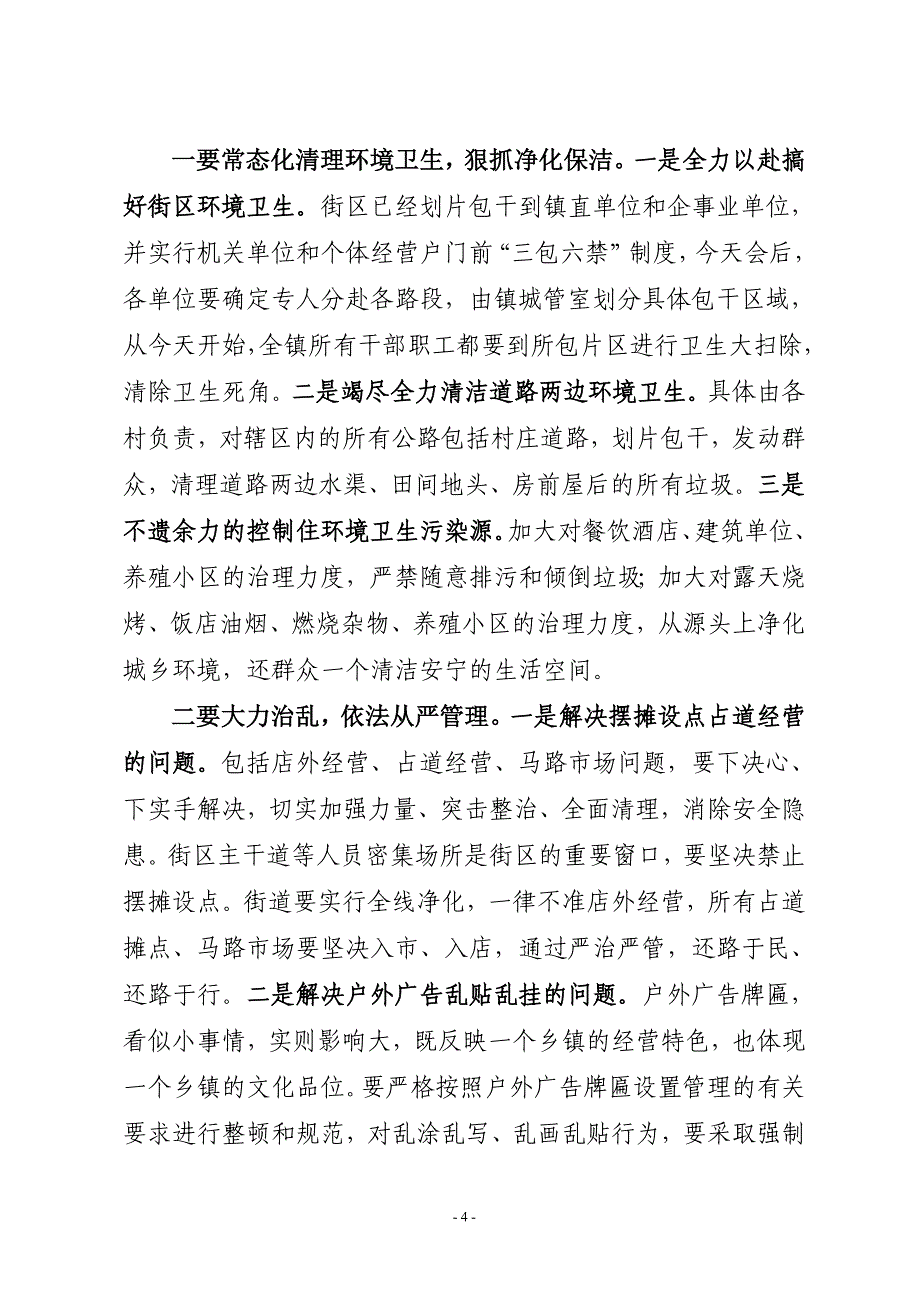 一要常态化清理环境卫生，狠抓净化保洁。一是全力以赴搞
好街区环境卫生。街区已经划片包干到镇直单位和企事业单位，
并实行机关单位和个体经营户门前“三包六禁”制度，今天会后，
各单位要确定专人分赴各路段，由镇城管室划分具体包干区域，
从今天开始，全镇所有干部职工都要到所包片区进行卫生大扫除，
清除卫生死角。二是竭尽全力清洁道路两边环境卫生。具体由各
村负责，对辖区内的所有公路包括村庄道路，划片包干，发动群
众，清理道路两边水渠、田间地头、房前屋后的所有垃圾。三是
不遗余力的控制住环境卫生污染源。加大对餐饮酒店、建筑单位、
养殖小区的治理力度，严禁随意排污和倾倒垃圾；加大对露天烧
烤、饭店油烟、燃烧杂物、养殖小区的治理力度，从源头上净化
城乡环境，还群众一个清洁安宁的生活空间。
二要大力治乱，依法从严管理。一是解决摆摊设点占道经营
的问题。包括店外经营、占道经营、马路市场问题，要下决心、
下实手解决，切实加强力量、突击整治、全面清理，消除安全隐
患。街区主干道等人员密集场所是街区的重要窗口，要坚决禁止
摆摊设点。街道要实行全线净化，一律不准店外经营，所有占道
摊点、马路市场要坚决入市、入店，通过严治严管，还路于民、
还路于行。二是解决户外广告乱贴乱挂的问题。户外广告牌匾，
看似小事情，实则影响大，既反映一个乡镇的经营特色，也体现
一个乡镇的文化品位。要严格按照户外广告牌匾设置管理的有关
要求进行整顿和规范，对乱涂乱写、乱画乱贴行为，要采取强制
- 4 -